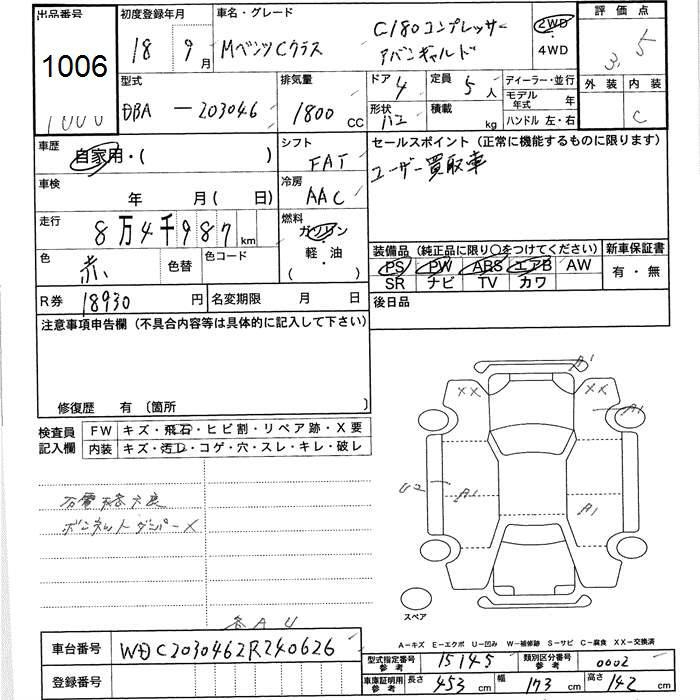 出品番号
1006
初度登録年月
18 9 月
車名・グレード
Mベンツ Cクラス
C180コンプレッサー
アバンギャルド
2WD
4WD
評価点
3.5
外装 内装
C
型式
DBA-203046
排気量
1800 CC
ドア
4
形状
ハコ
定員
5 人
積載
kg
ディーラー・並行
モデル年式 年
ハンドル 左・右
車歴
自家用・( )
シフト
FAT
セールスポイント(正常に機能するものに限ります)
ユーザー買取車
車検
年 月( 日)
冷房
AAC
走行
8万4千987 km
燃料
ガソリン
軽・油
( )
色
赤
色替
色コード
装備品(純正品に限り○をつけてください)
新車保証書
PS PW ABS エアB AW
SR ナビ TV カワ
有・無
R券
18930 円
名変期限 月 日
後日品
注意事項申告欄(不具合内容等は具体的に記入して下さい)
修復歴 有 〔箇所 〕
検査員
記入欄
FW キズ・飛石・ヒビ割・リペア跡・X要
内装 キズ・汚レ・コゲ・穴・スレ・キレ・破レ
ボンネットダンパー×
各AU
A1
XX
XX
A1
A1
A1
スペア
A-キズ E-エクボ U-凹み W-補修跡 S-サビ C-腐食 XX-交換済
車台番号
WDC2030462R240626
登録番号
型式指定番号
参考
15145
類別区分番号
参考
0002
車庫証明用
参考
長さ 453 cm 幅 173 cm 高さ 142 cm